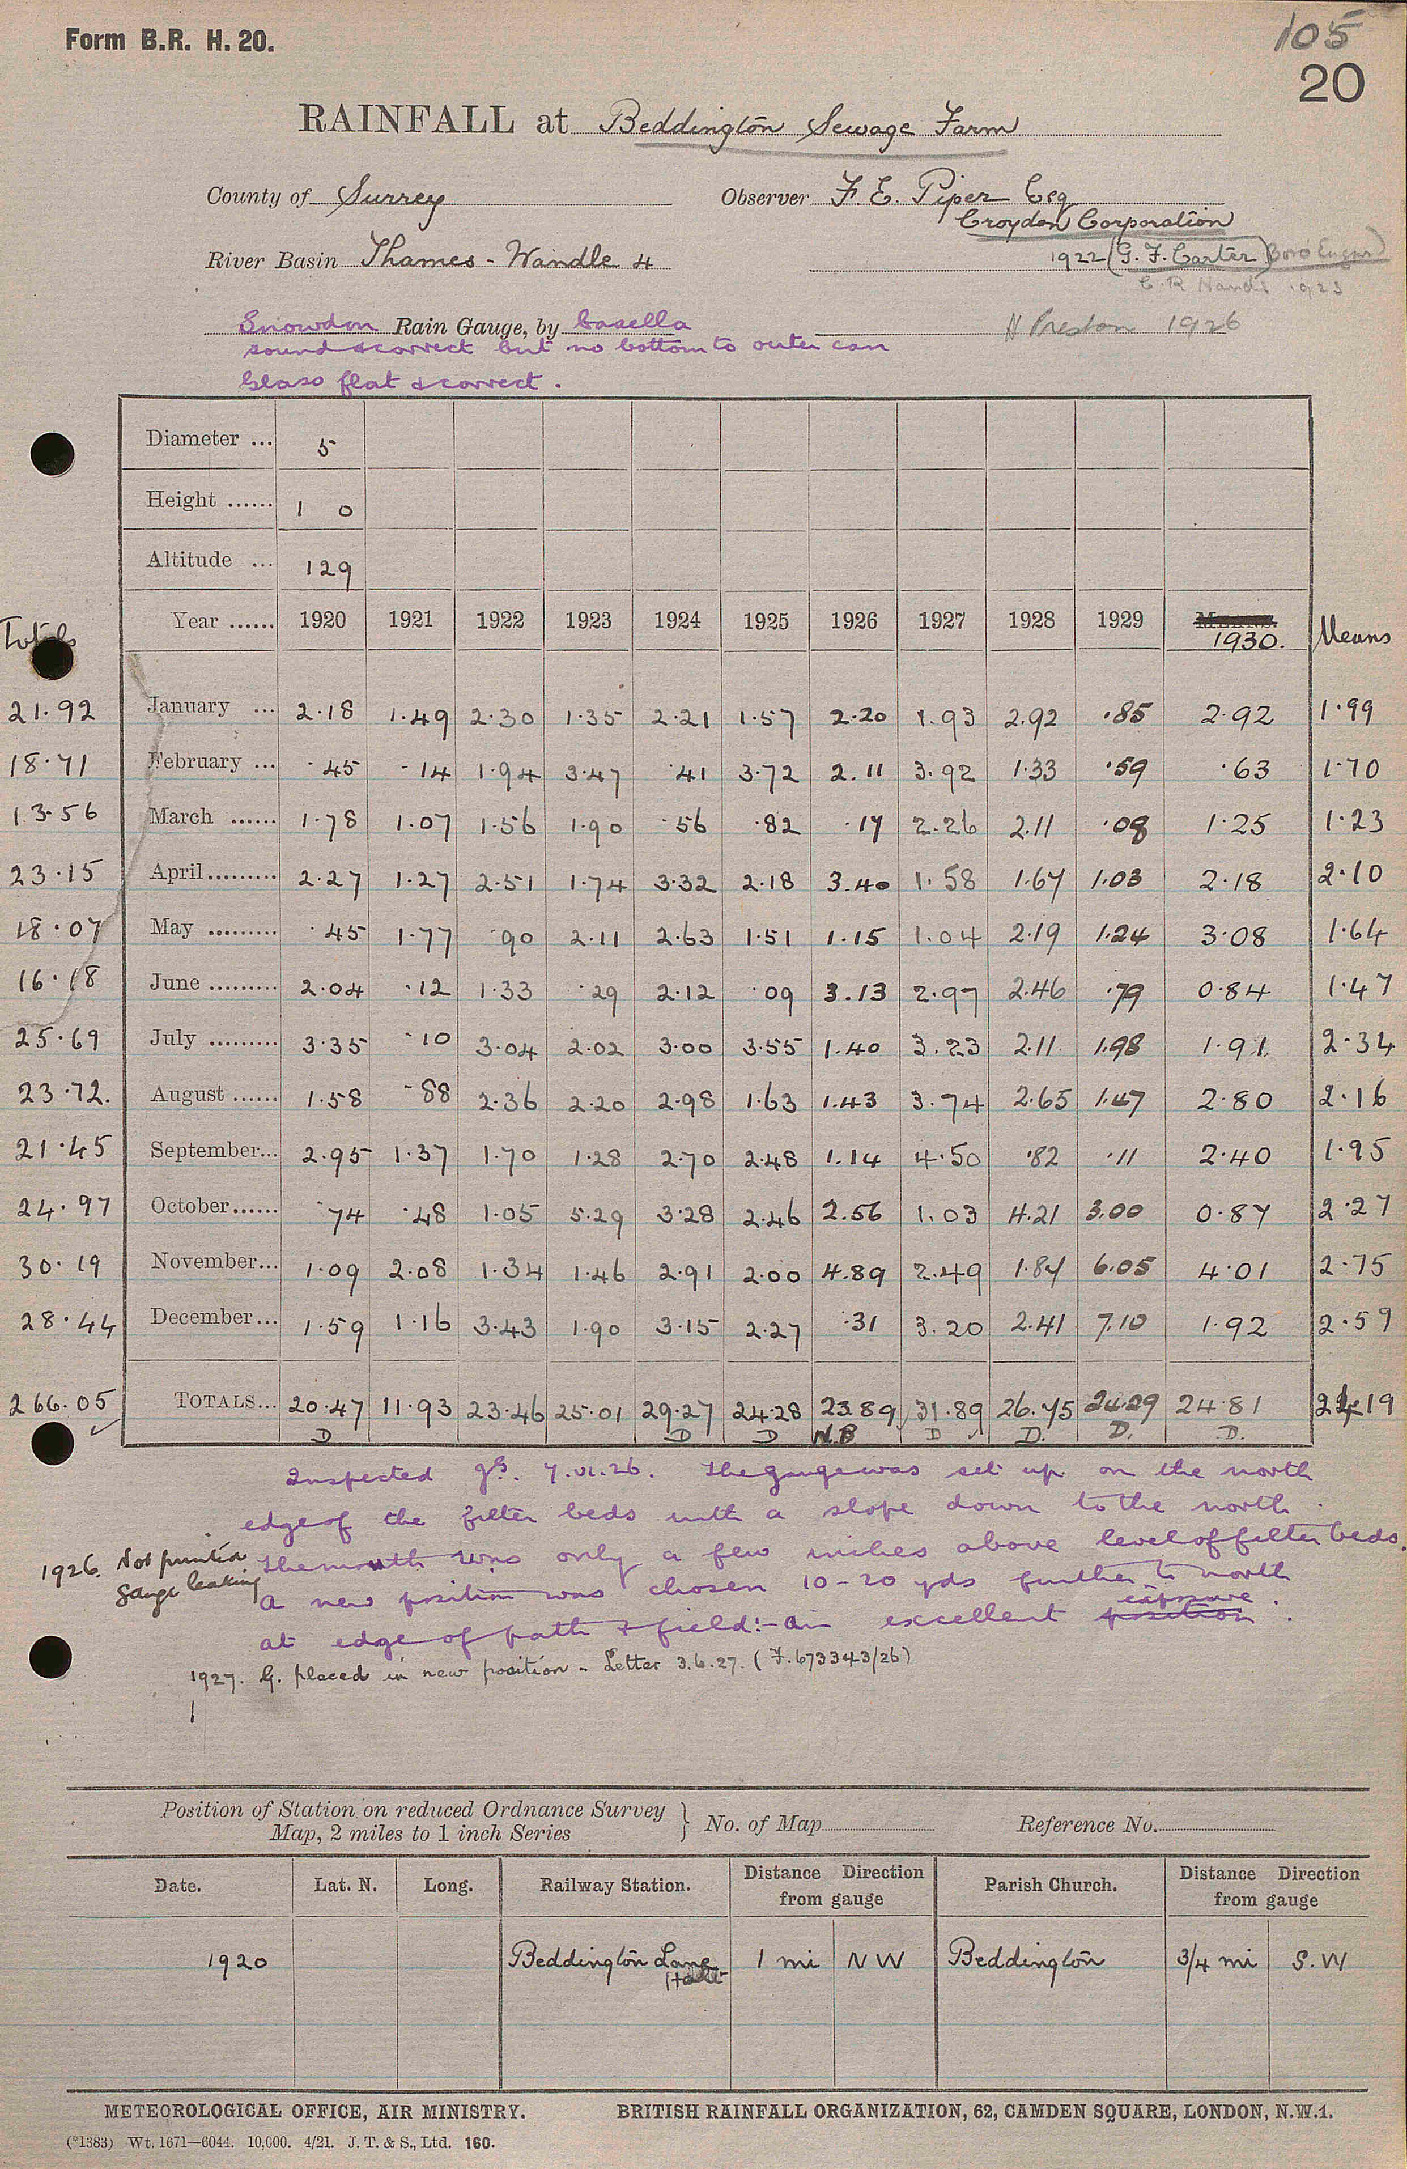 Form B.R. H. 20.
105
20
RAINFALL at Beddington Sewage Farm
County of Surrey Observer F. E. Piper Esq
Croydon Corporation
River Basin Thames - Wandle 4 1922 (G. F. Carter) Boro Engnr)
1923
Snowdon Rain Gauge, by Casella H Preston 1926
sound & correct but no bottom to outer can
Glass flat & correct.
Diameter ... 5
Height ...... 1 0
Altitude ... 129
Totals Year ...... 1920 1921 1922 1923 1924 1925 1926 1927 1928 1929 1930. Means
21.92 January ... 2.18 1.49 2.30 1.35 2.21 1.57 2.20 1.93 2.92 .85 2.92 1.99
18.71 February ... .45 .14 1.94 3.47 .41 3.72 2.11 3.92 1.33 .59 .63 1.70
13.56 March ...... 1.78 1.07 1.56 1.90 .56 .82 .17 2.26 2.11 .08 1.25 1.23
23.15 April......... 2.27 1.27 2.51 1.74 3.32 2.18 3.40 1.58 1.67 1.03 2.18 2.10
18.07 May ......... .45 1.77 .90 2.11 2.63 1.51 1.15 1.04 2.19 1.24 3.08 1.64
16.18 June ......... 2.04 .12 1.33 .29 2.12 .09 3.13 2.97 2.46 .79 0.84 1.47
25.69 July ......... 3.35 .10 3.04 2.02 3.00 3.55 1.40 3.23 2.11 1.98 1.91 2.34
23.72. August ...... 1.58 .88 2.36 2.20 2.98 1.63 1.43 3.74 2.65 1.47 2.80 2.16
21.45 September... 2.95 1.37 1.70 1.28 2.70 2.48 1.14 4.50 .82 .11 2.40 1.95
24.97 October...... .74 .48 1.05 5.29 3.28 2.46 2.56 1.03 4.21 3.00 0.87 2.27
30.19 November... 1.09 2.08 1.34 1.46 2.91 2.00 4.89 2.49 1.87 6.05 4.01 2.75
28.44 December... 1.59 1.16 3.43 1.90 3.15 2.27 .31 3.20 2.41 7.10 1.92 2.59
266.05 TOTALS... 20.47 11.93 23.46 25.01 29.27 24.28 23.89 31.89 26.75 24.29 24.81 24.19
D D D N.B D D. D. D.
Inspected 7.VI.26. The gauge was set up on the north
edge of the filter beds with a slope down to the north.
The mouth was only a few inches above level of filter beds.
1926. Not printed
gauge leaking
A new position was chosen 10-20 yds further to north
at edge of path & field:- an excellent position exposure.
1927. G. placed in new position - Letter 3.6.27. (F.673343/26)
Position of Station on reduced Ordnance Survey
Map, 2 miles to 1 inch Series } No. of Map Reference No.
Date. Lat. N. Long. Railway Station. Distance Direction from gauge Parish Church. Distance Direction from gauge
1920 Beddington Lane Halt 1 mi NW Beddington 3/4 mi S.W
METEOROLOGICAL OFFICE, AIR MINISTRY. BRITISH RAINFALL ORGANIZATION, 62, CAMDEN SQUARE, LONDON, N.W.1.
(*1383) Wt. 1671—6044. 10,000. 4/21. J. T. & S., Ltd. 160.